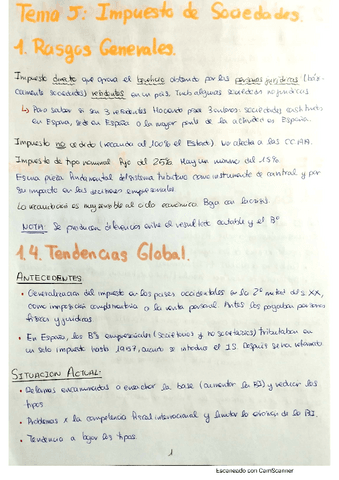 Tema 5: Impuesto de Sociedades.
1. Rasgos Generales.
Impuesto directo que grava el beneficio obtenido por las personas jurídicas (bási-
camente sociedades) residentes en un país. Trib algunas sociedades no jurídicas.
↳ Para saber si son residentes Hacienda pone 3 criterios: sociedades constituidas
en España, sede en España o la mayor parte de la actividad en España.
Impuesto no cedido (recauda al 100% el Estado) No afecta a las CCAA.
Impuesto de tipo nominal fijo del 25%. Hay un mínimo del 15%.
Es una pieza fundamental del sistema tributario como instrumento de control y por
su impacto en las decisiones empresariales.
La recaudación es muy sensible al ciclo económico. Baja con la crisis.
NOTA: Se producen diferencias entre el resultado contable y el Bº
1.4. Tendencias Global.
ANTECEDENTES
• Generalización del impuesto en los países occidentales en la 2ª mitad del s. XX,
como impuesto complementario a la renta personal. Antes los pagaban personas
físicas y jurídicas.
• En España, los Bºs empresariales (societarios y no societarios) tributaban en
un solo impuesto hasta 1957, cuando se introdujo el IS. Después se ha reformado
SITUACIÓN ACTUAL:
• Reformas encaminadas a ensanchar la base (aumentar la BI) y reducir los
tipos
• Problemas x la competencia fiscal internacional y limitar la erosión de la BI.
• Tendencia a bajar los tipos.
1
Escaneado con CamScanner